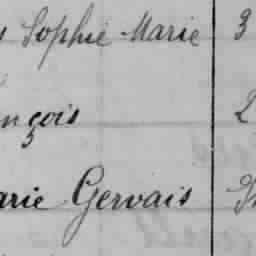 Sophie Marie 3
nçois 2
arie Gervais